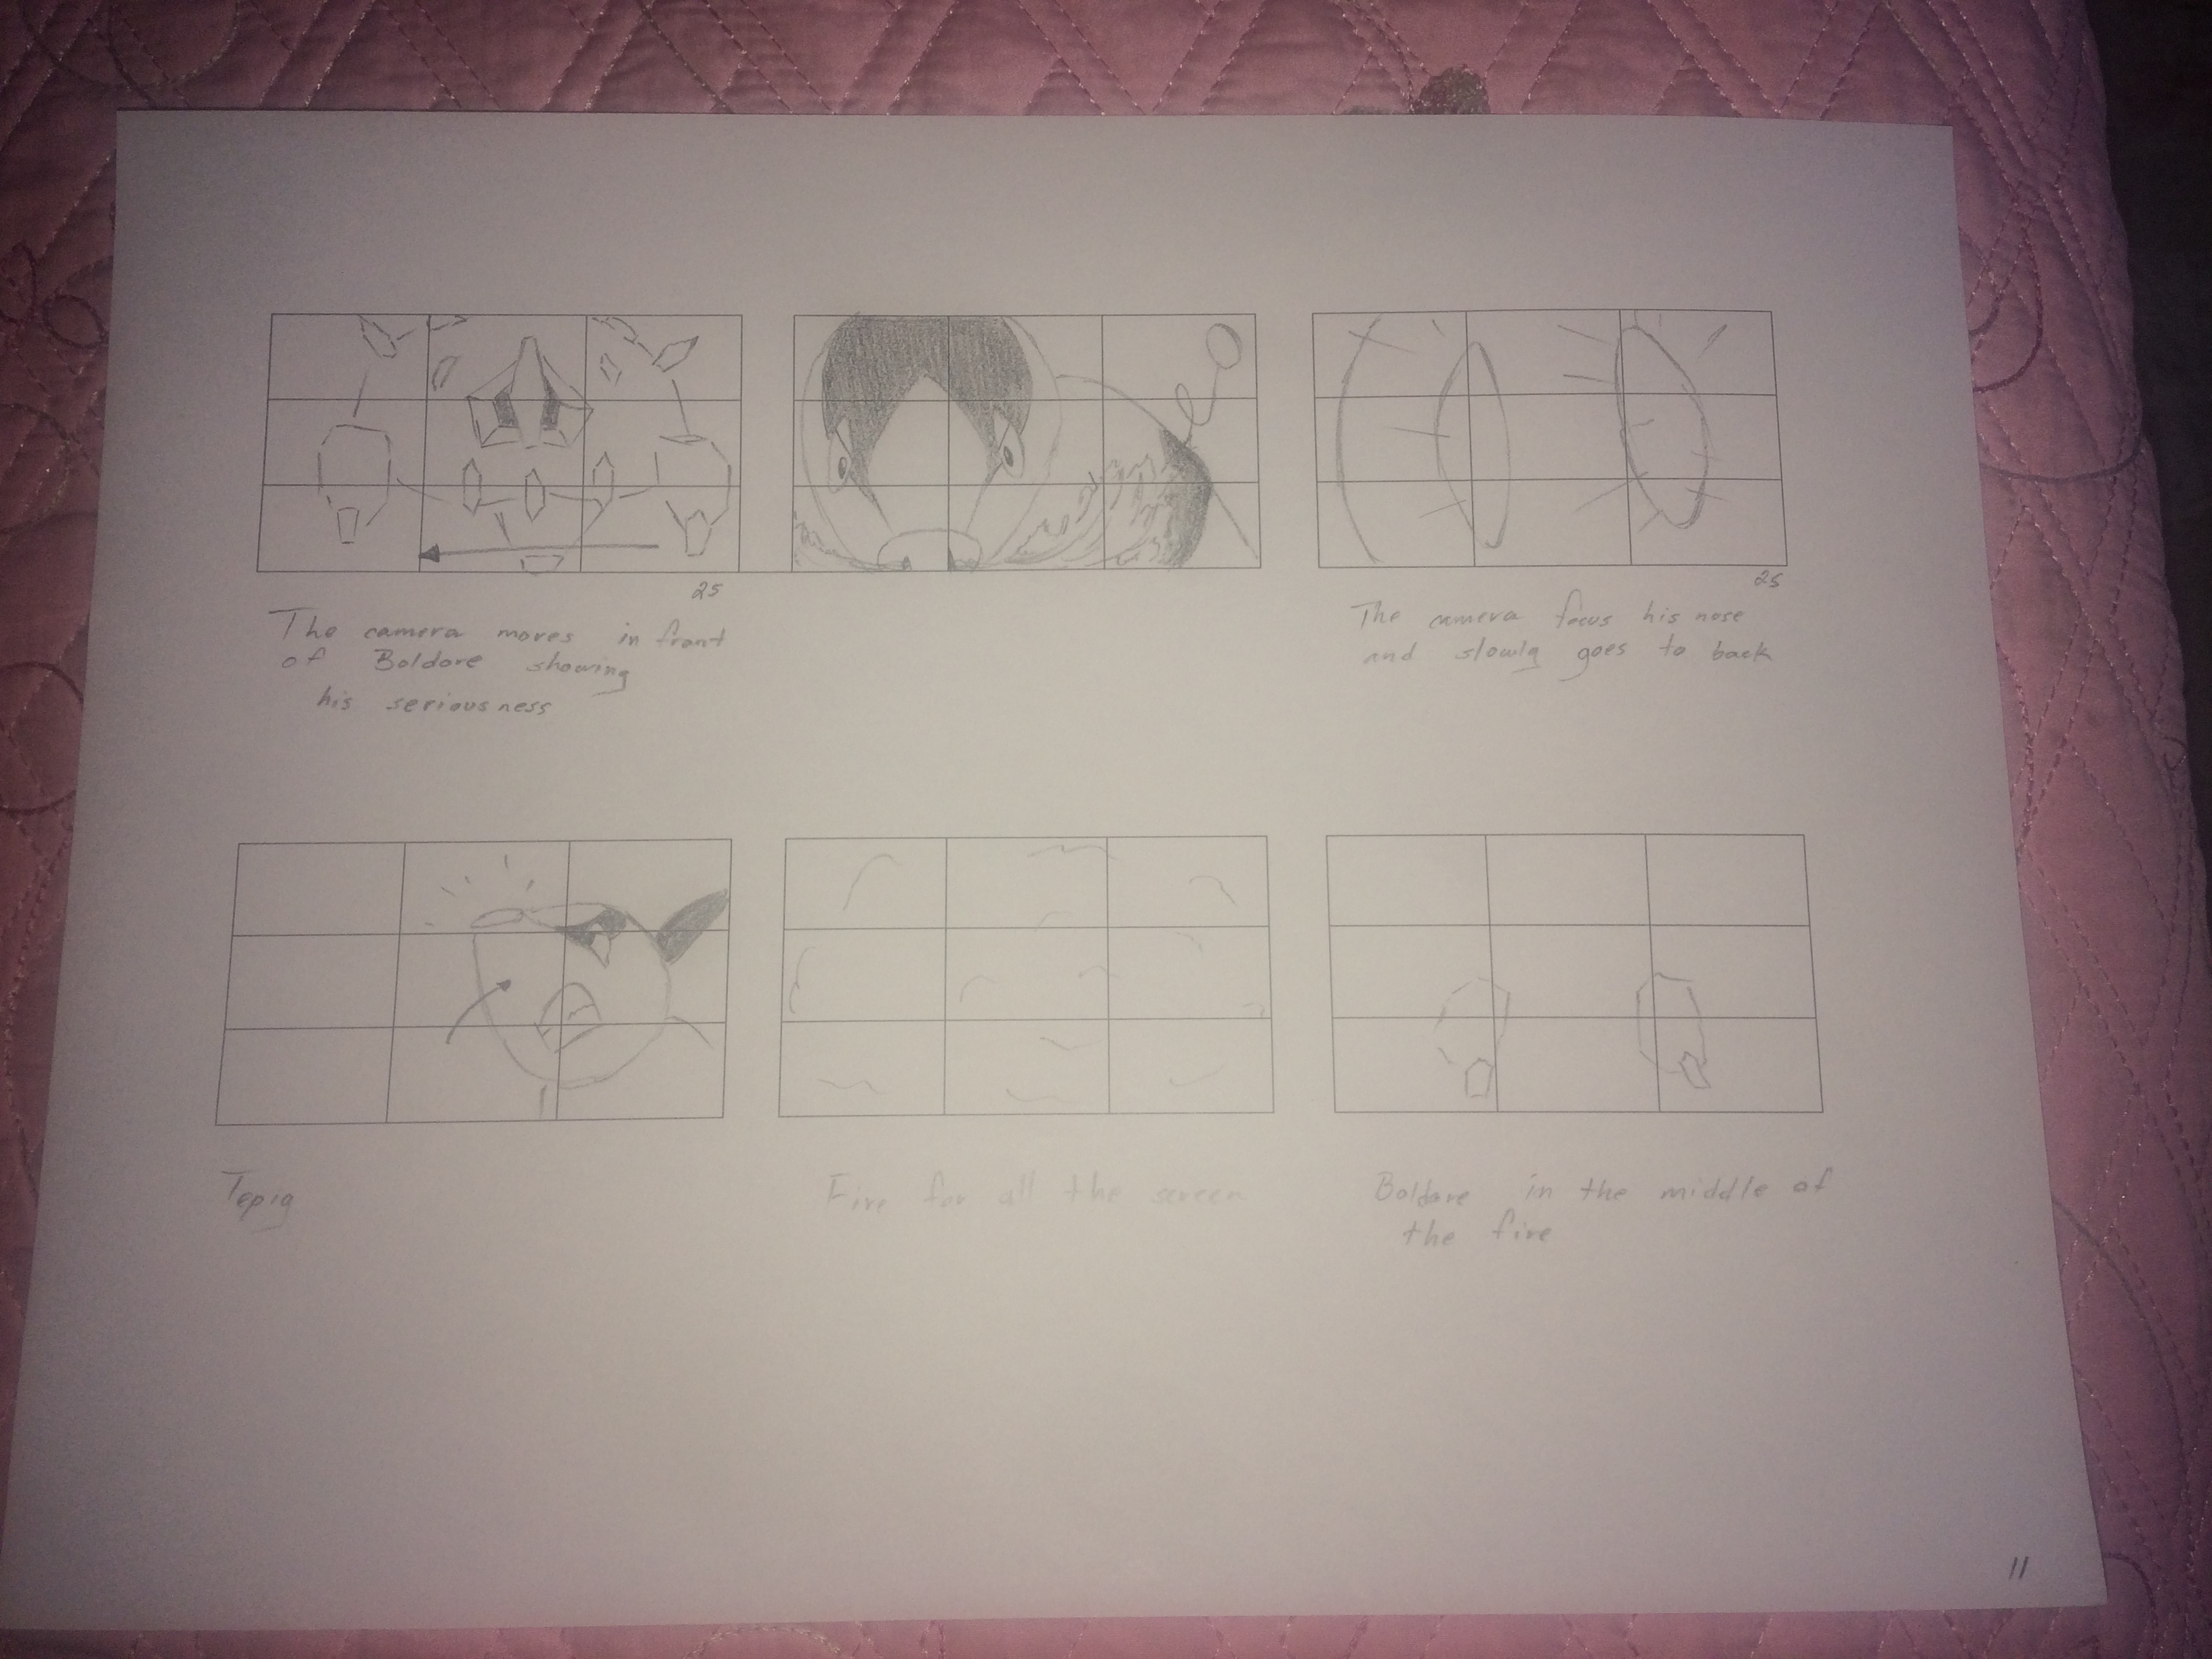 25
The camera moves in front
of Boldore showing
his seriousness
25
The camera focus his nose
and slowly goes to back
Tepig
Fire for all the screen
Boldore in the middle of
the fire
11